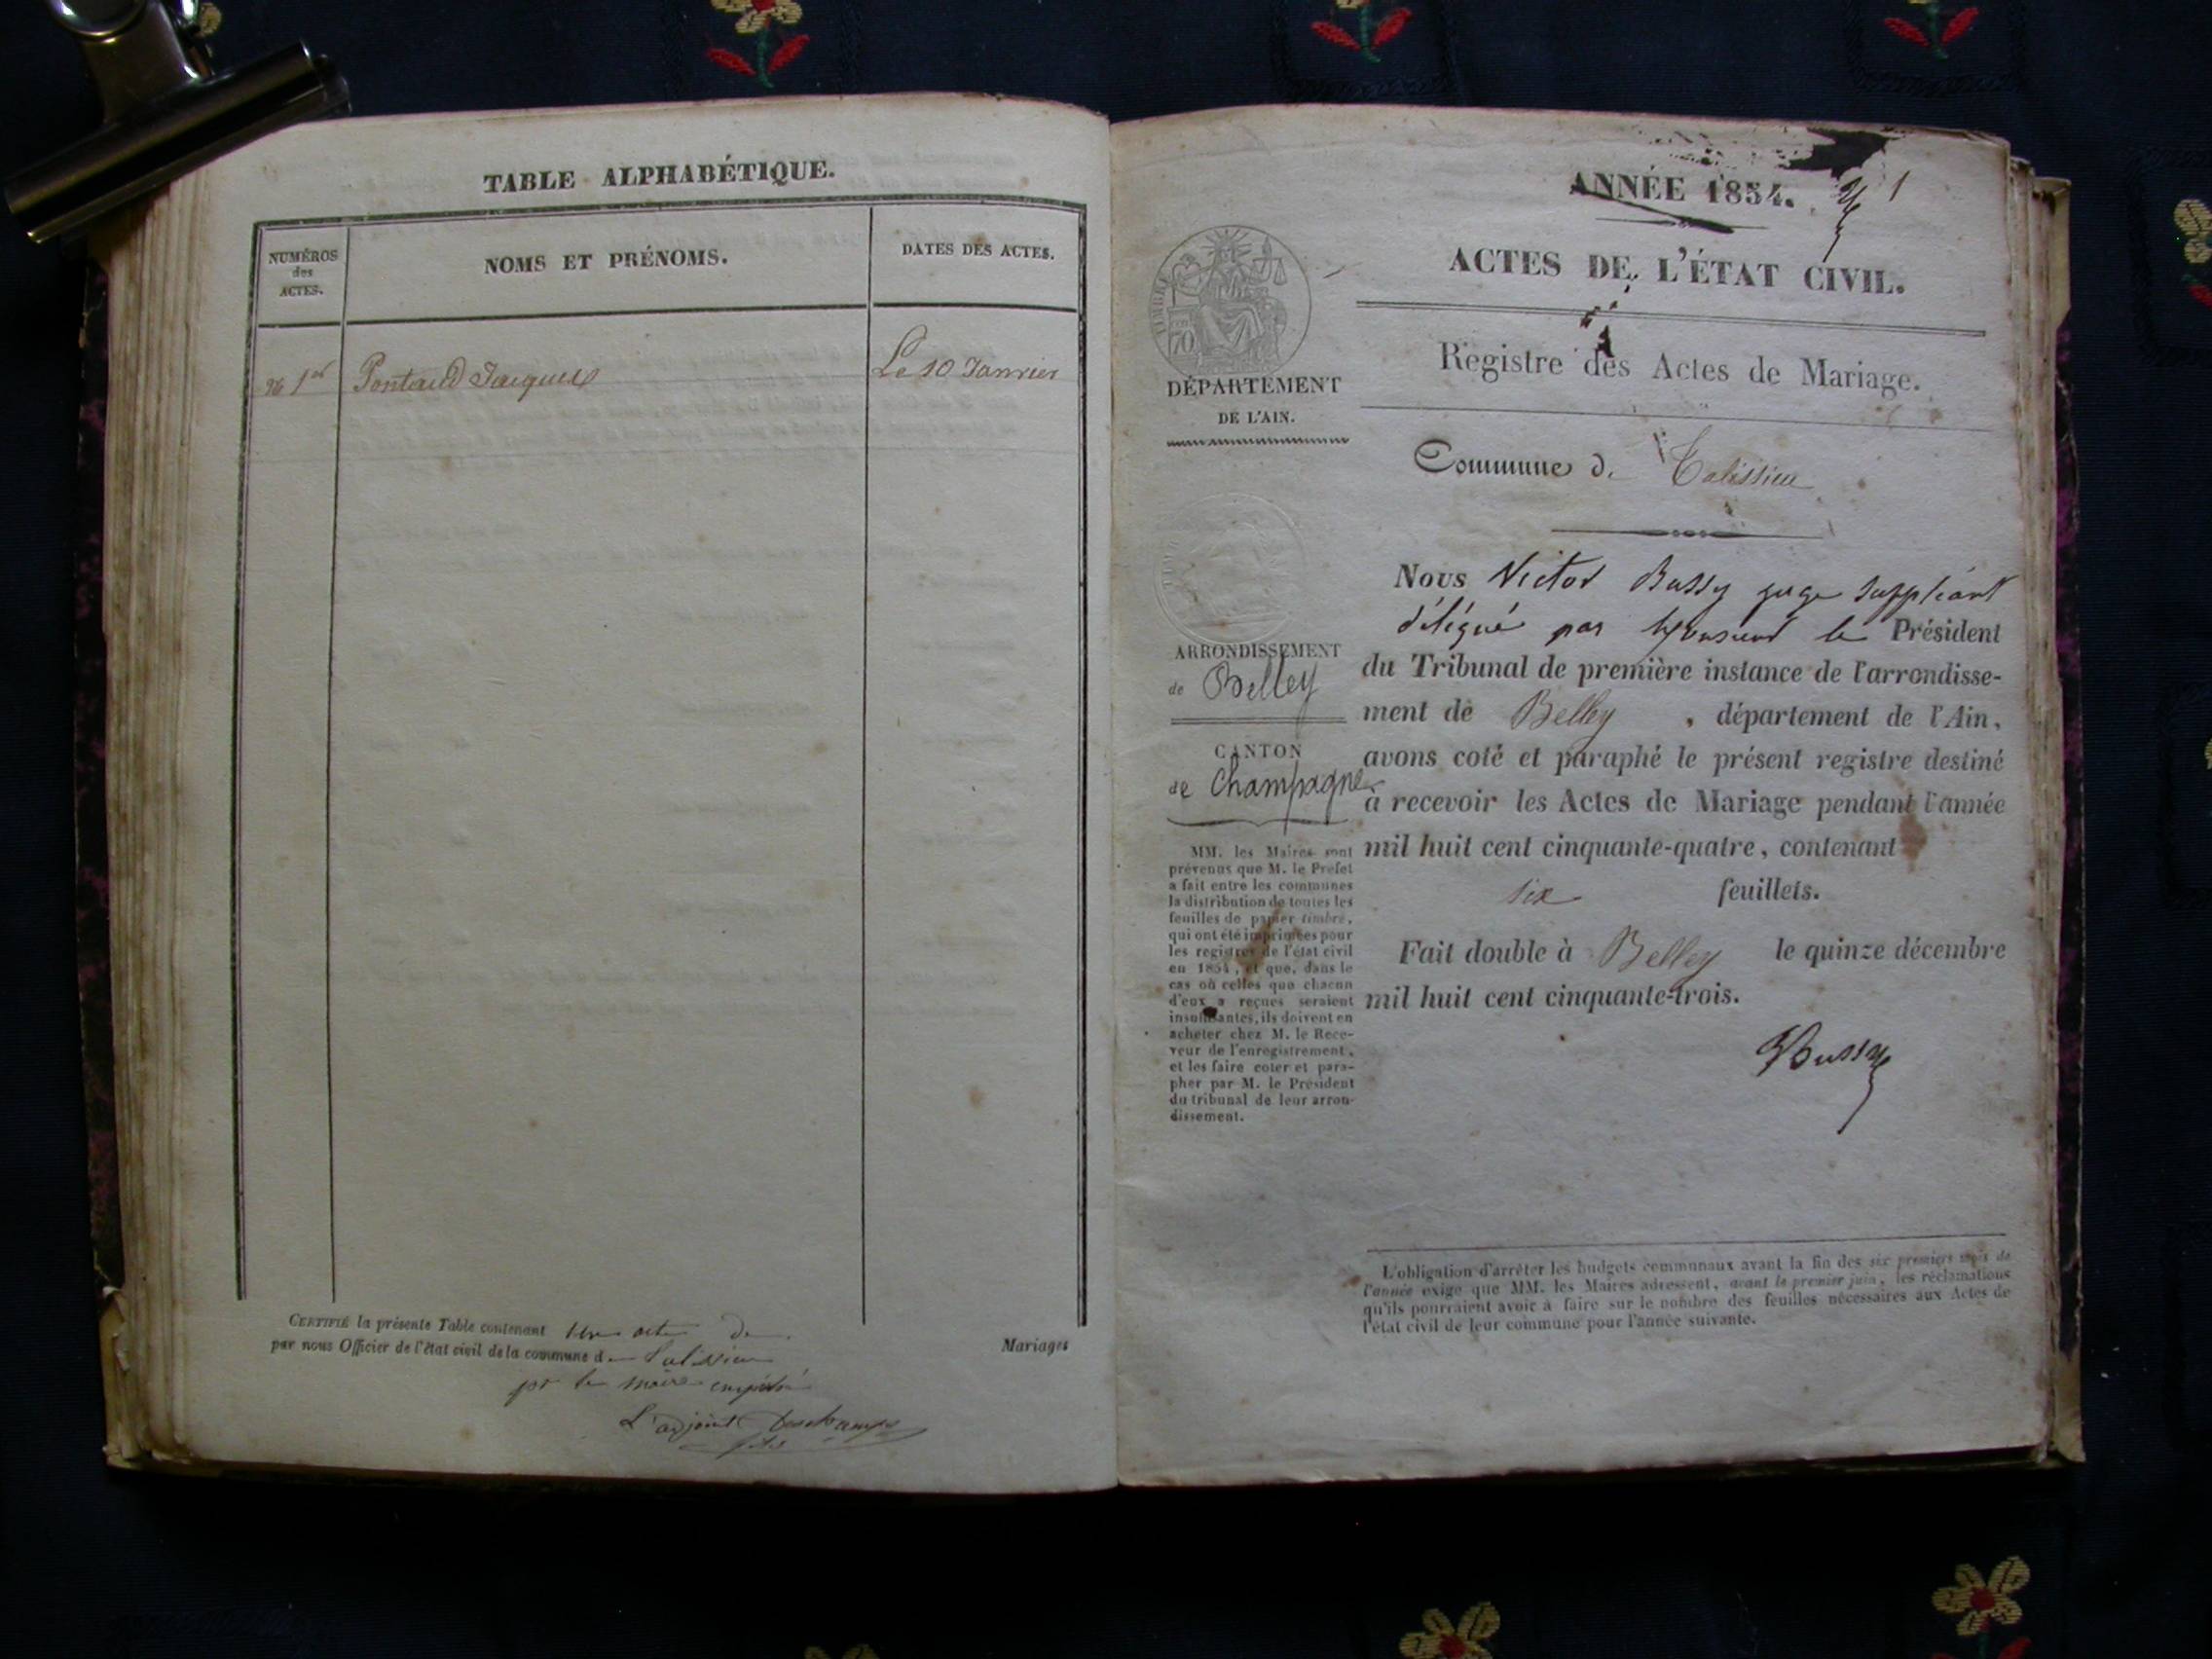 TABLE ALPHABÉTIQUE.
NUMÉROS
des
ACTES.
NOMS ET PRÉNOMS.
DATES DES ACTES.
Jacques
Le 10 Janvier
CERTIFIÉ la présente Table contenant un acte de
par nous Officier de l'état civil de la commune de Talissieu
Mariages
pr le maire empêché
L'adjoint Deschamps
fils
ANNÉE 1854.
1
ACTES DE L'ÉTAT CIVIL.
TIMBRE
70
Registre des Actes de Mariage.
DÉPARTEMENT
DE L'AIN.
Commune de Talissieu
Nous Victor Bussy juge suppléant
délégué par Monsieur le Président
du Tribunal de première instance de l'arrondisse-
ment de Belley, département de l'Ain,
avons coté et paraphé le présent registre destiné
à recevoir les Actes de Mariage pendant l'année
mil huit cent cinquante-quatre, contenant
six feuillets.
Fait double à Belley le quinze décembre
mil huit cent cinquante-trois.
VBussy
ARRONDISSEMENT
de Belley
CANTON
de Champagne
MM. les Maires sont
prévenus que M. le Préfet
a fait entre les communes
la distribution de toutes les
feuilles de papier timbré,
qui ont été imprimées pour
les registres de l'état civil
en 1854, et que, dans le
cas où celles que chacun
d'eux a reçues seraient
insuffisantes, ils doivent en
acheter chez M. le Rece-
veur de l'enregistrement,
et les faire coter et para-
pher par M. le Président
du tribunal de leur arron-
dissement.
L'obligation d'arrêter les budgets communaux avant la fin des six premiers mois de
l'année exige que MM. les Maires adressent, avant le premier juin, les réclamations
qu'ils pourraient avoir à faire sur le nombre des feuilles nécessaires aux Actes de
l'état civil de leur commune pour l'année suivante.